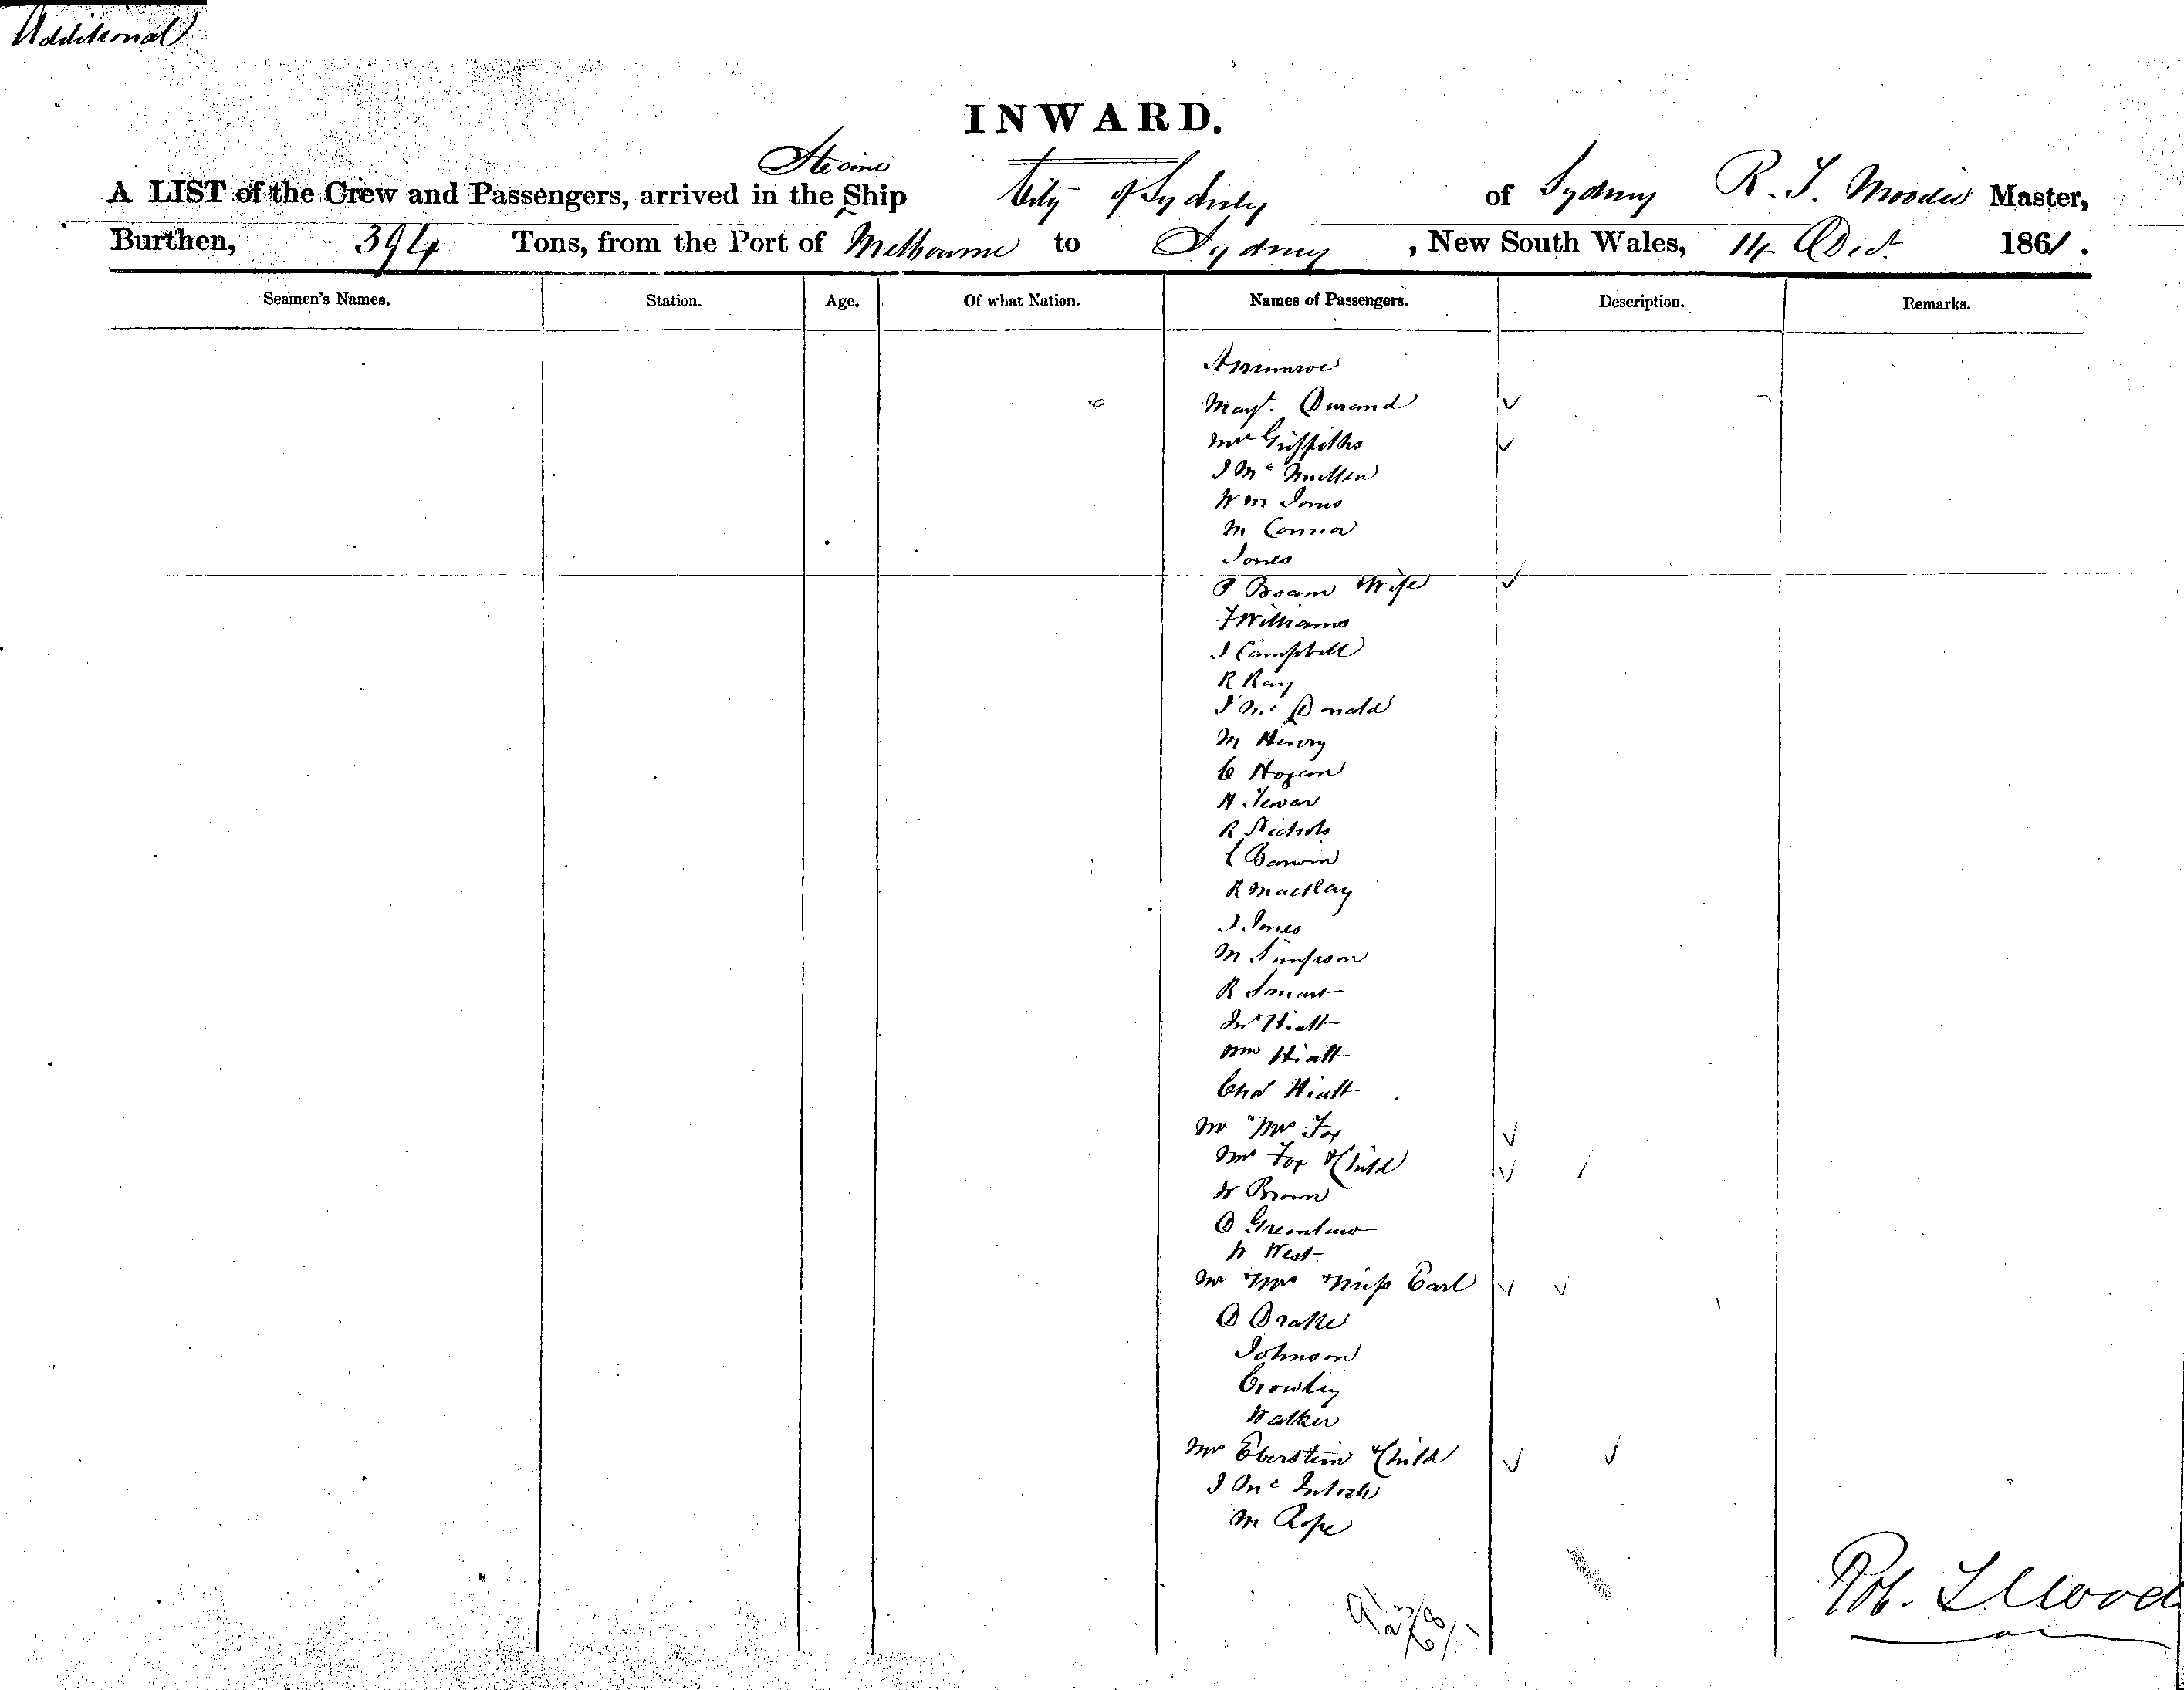 Additional
INWARD.
Steam
A LIST of the Crew and Passengers, arrived in the Ship City of Sydney of Sydney R. T. Moodie Master,
Burthen, 394 Tons, from the Port of Melbourne to Sydney, New South Wales, 14 Decr. 1861.
Seamen's Names. Station. Age. Of what Nation. Names of Passengers. Description. Remarks.
A Munroe
Durand
Mrs Griffiths
J McMullen
Wm Jones
M Connor
Jones
P Boam & Wife
F Williams
J Campbell
R Ray
J McDonald
M Henry
C Hogan
H
R Nichols
C
R Mackay
J Jones
M Simpson
R Smart
Jno Hiatt
Wm Hiatt
Chas Hiatt
Mr & Mrs Fox
Mrs Fox & Child
W Brown
D Greenlaw
W West
Mr & Mrs & Miss Earl
D Drake
Johnson
Crowley
Walker
Mrs Eberstein & Child
J McIntosh
M Rope
Rob. T Mood